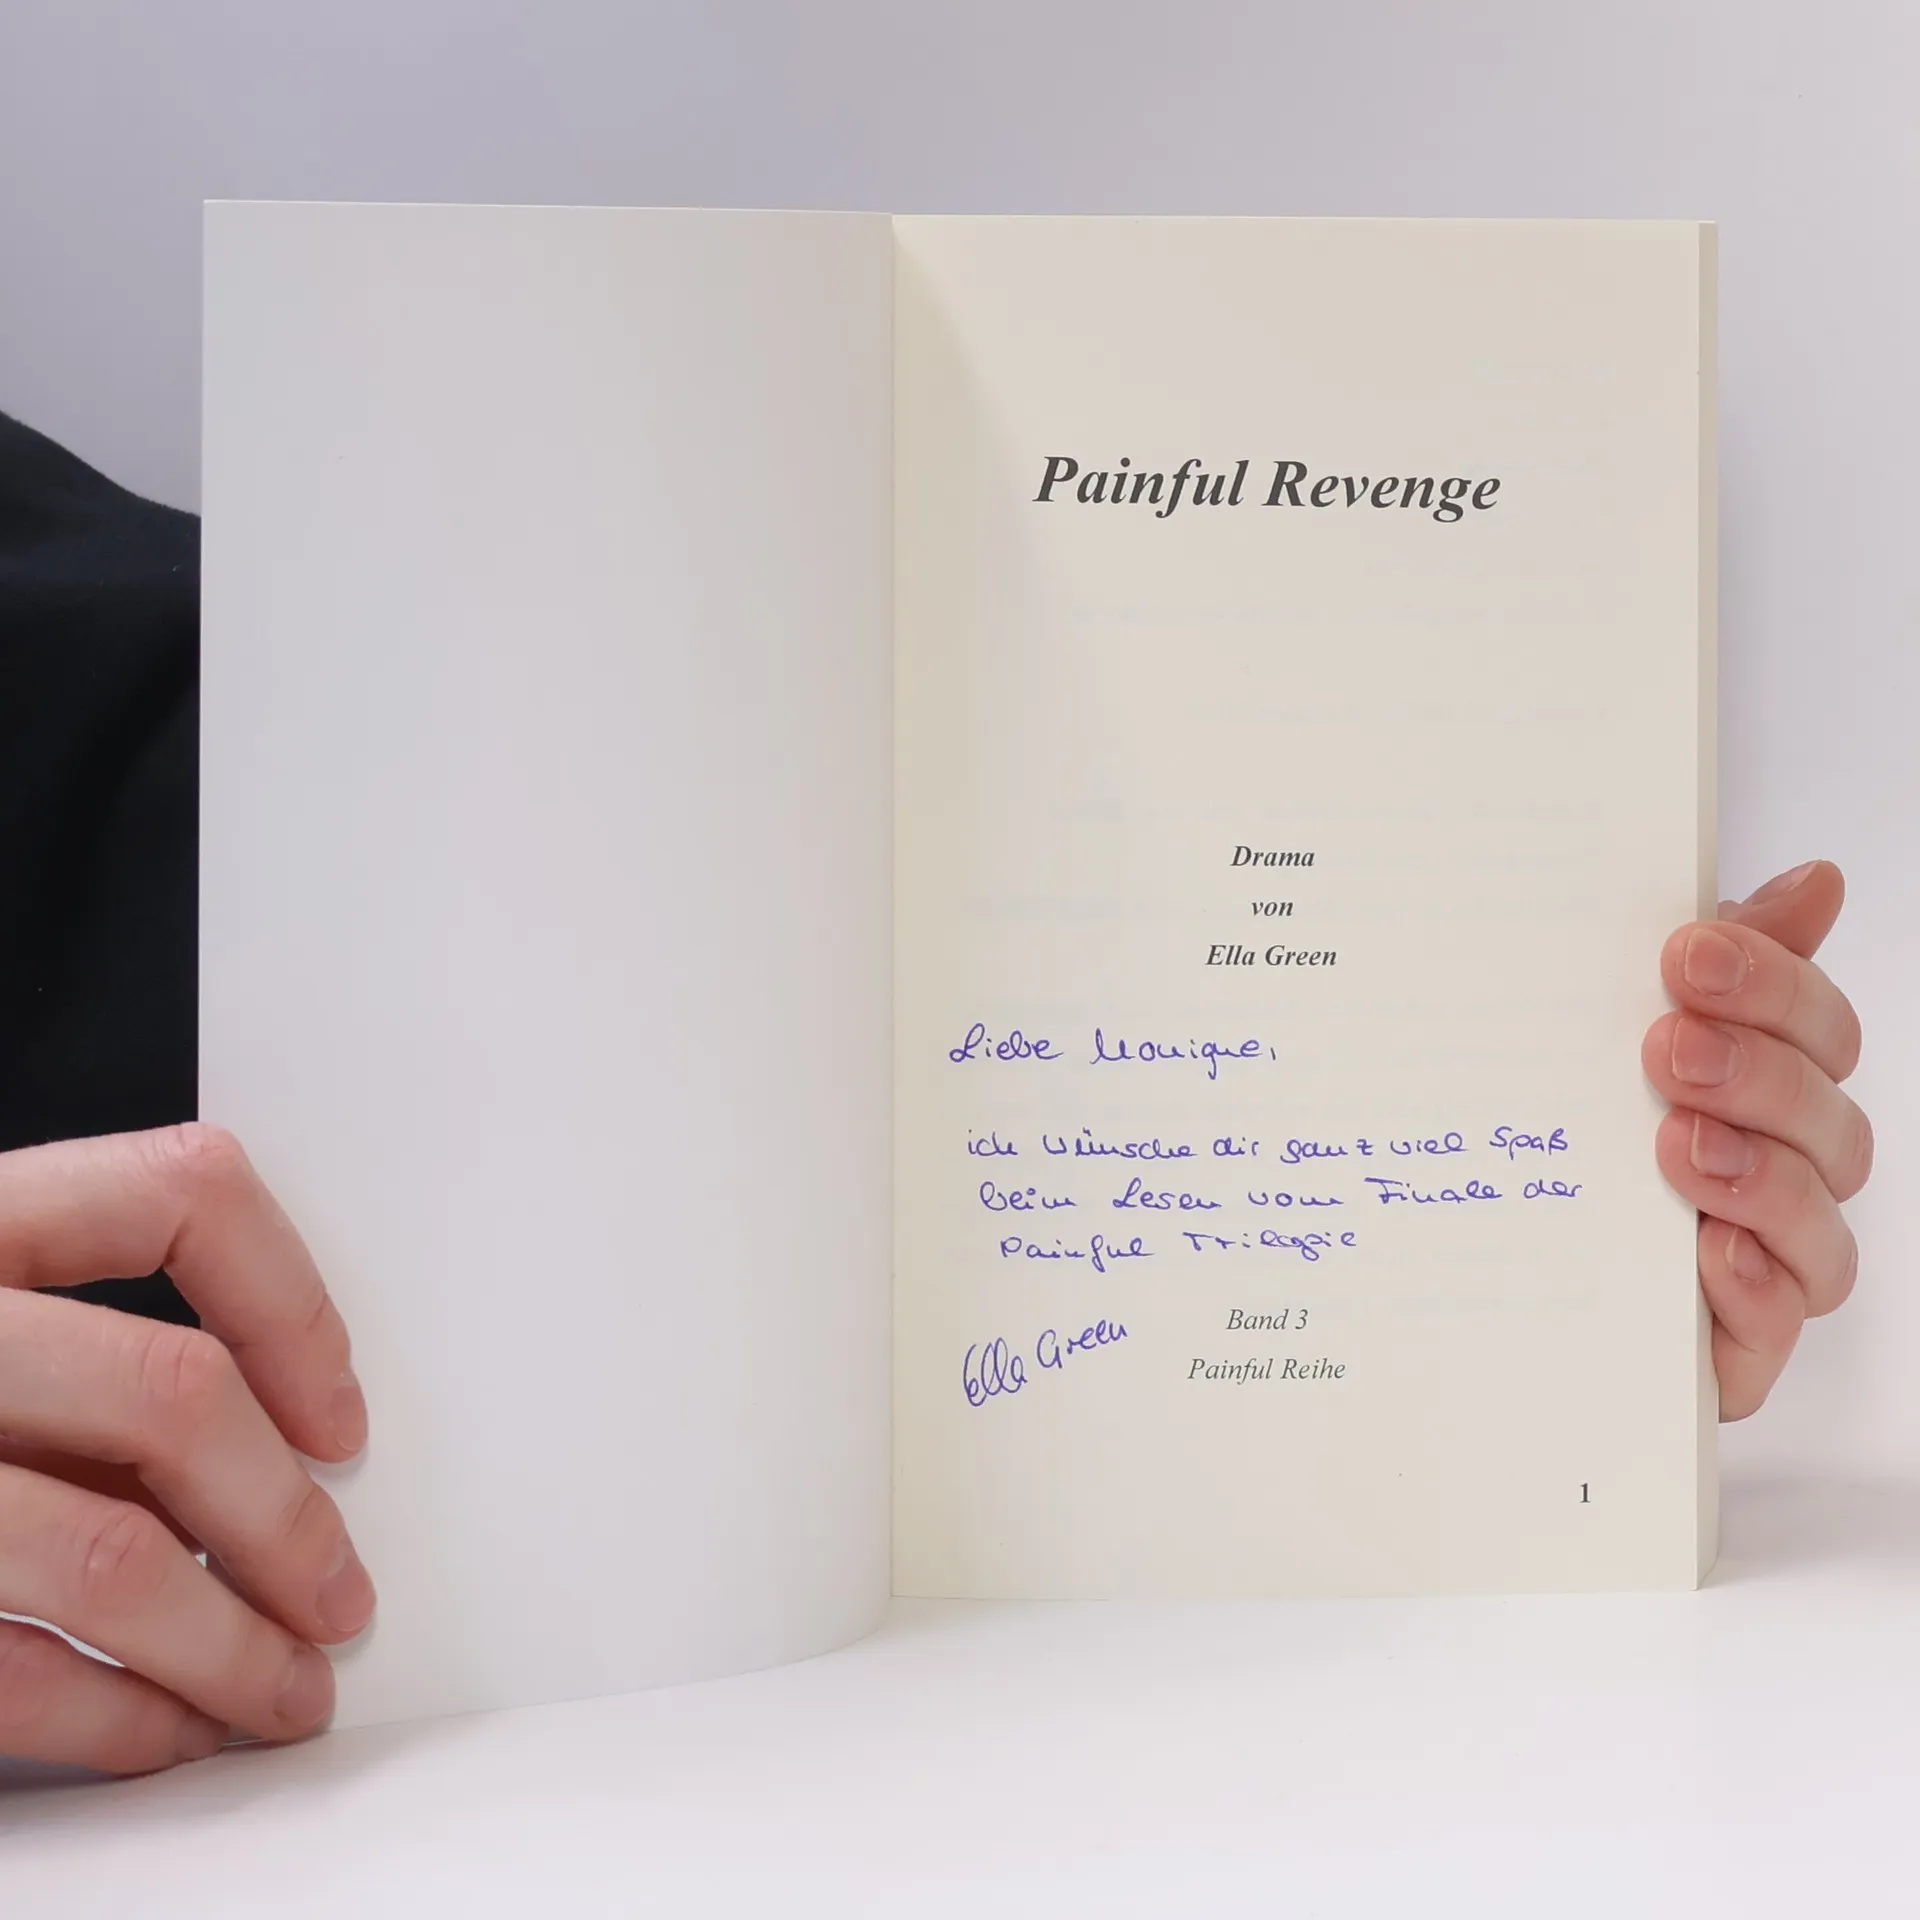 Painful Revenge
Drama
von
Ella Green
Liebe Monique,
ich wünsche dir ganz viel Spaß
beim Lesen vom Finale der
Painful Trilogie
Ella Green
Band 3
Painful Reihe
1